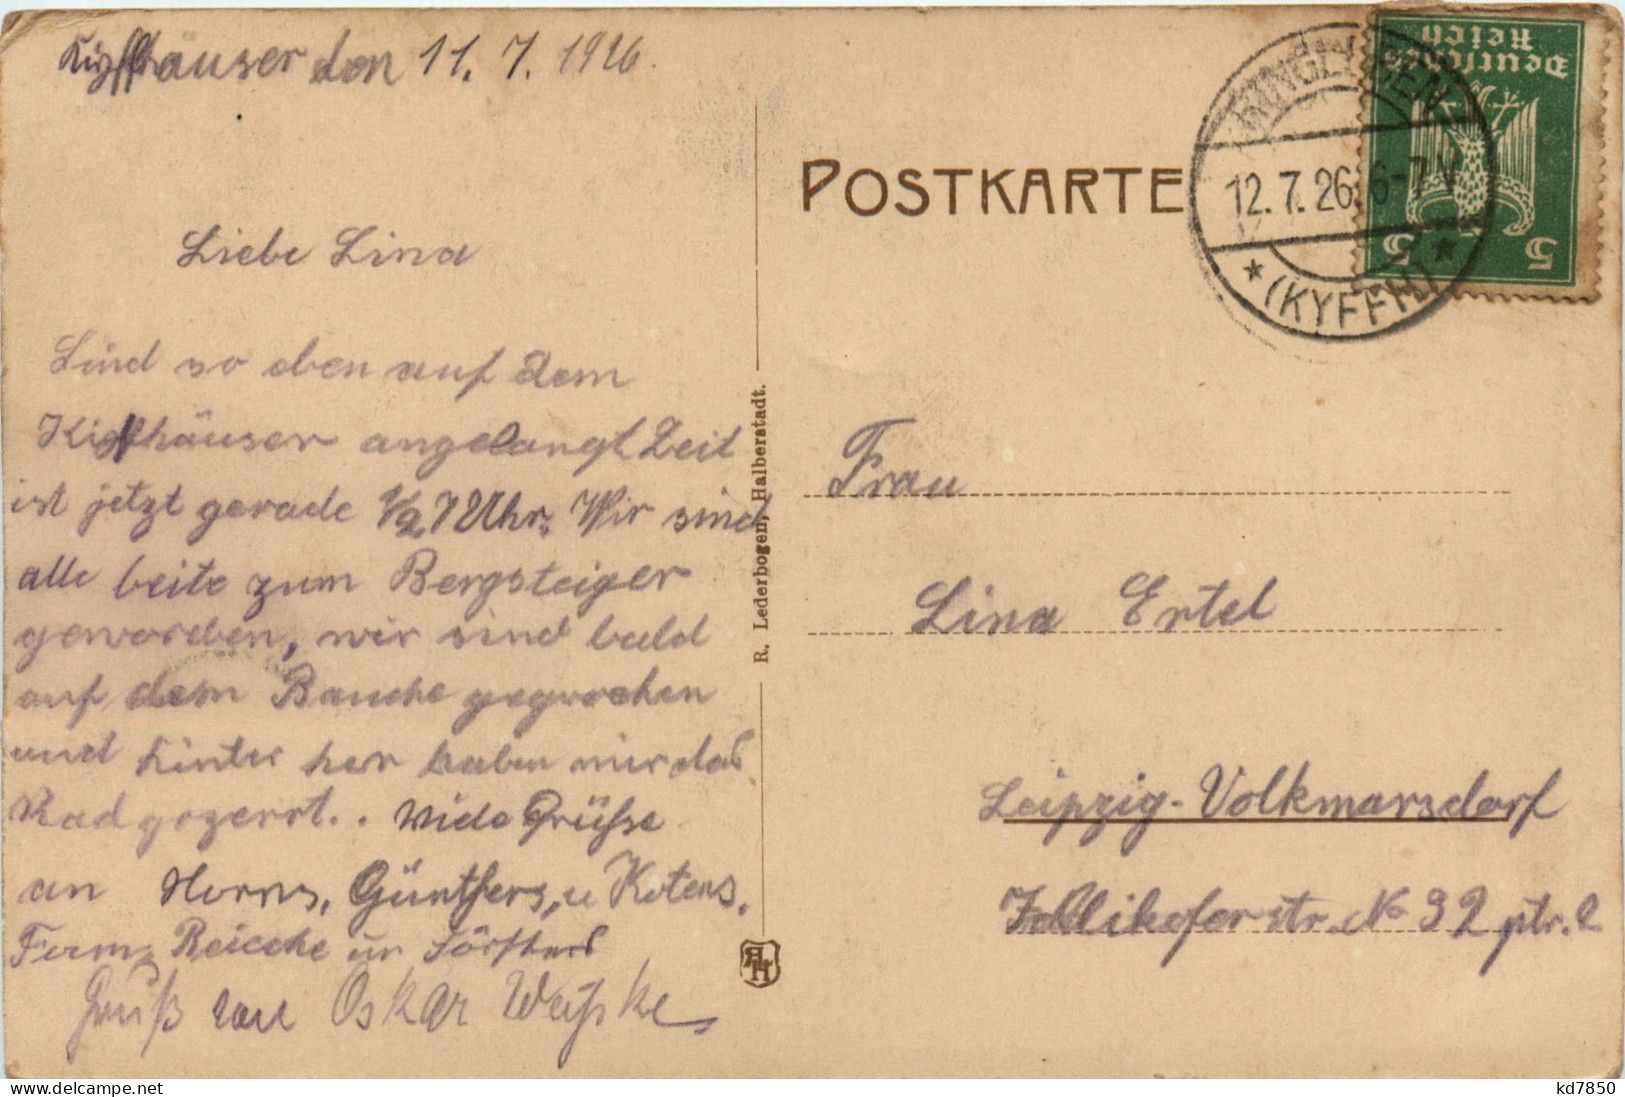 Kipffhäuser den 11. 7. 1926.
Liebe Lina
Sind so eben auf dem
Kipffhäuser angelangt Zeit
ist jetzt gerade 1/2 7 Uhr. Wir sind
alle beite zum Bergsteiger
geworden, wir sind bald
auf dem Bauche
und hinter her haben wir das
Rad gezerrt. . Wide Grüsse
an Horns, Günthers, u
Reicche un
Gruß von Oskar
POSTKARTE
Deutsches
Reich
5 5
12. 7. 26. 6-7 V
* (KYFFH.) *
R. Lederbogen, Halberstadt.
RLH
Frau
Lina Ertel
Leipzig-Volkmarsdorf
No 32 ptr.
kd7850